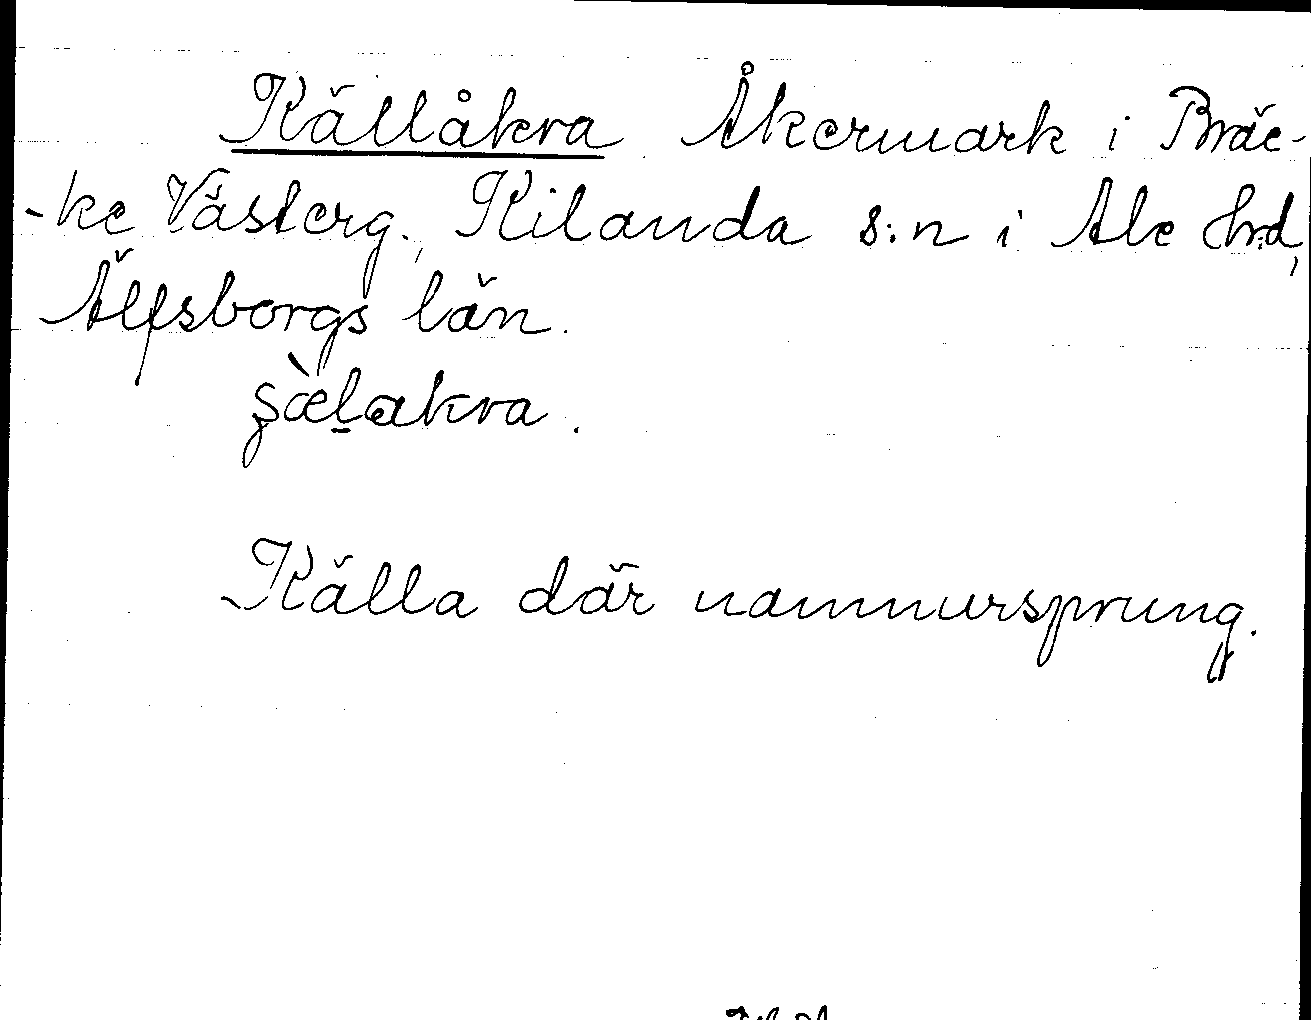 Källåkra Åkermark i Bräc-
-ke Västerg., Kilanda s:n i Ale hrd,
Älfsborgs län.
Källa där namnursprung.